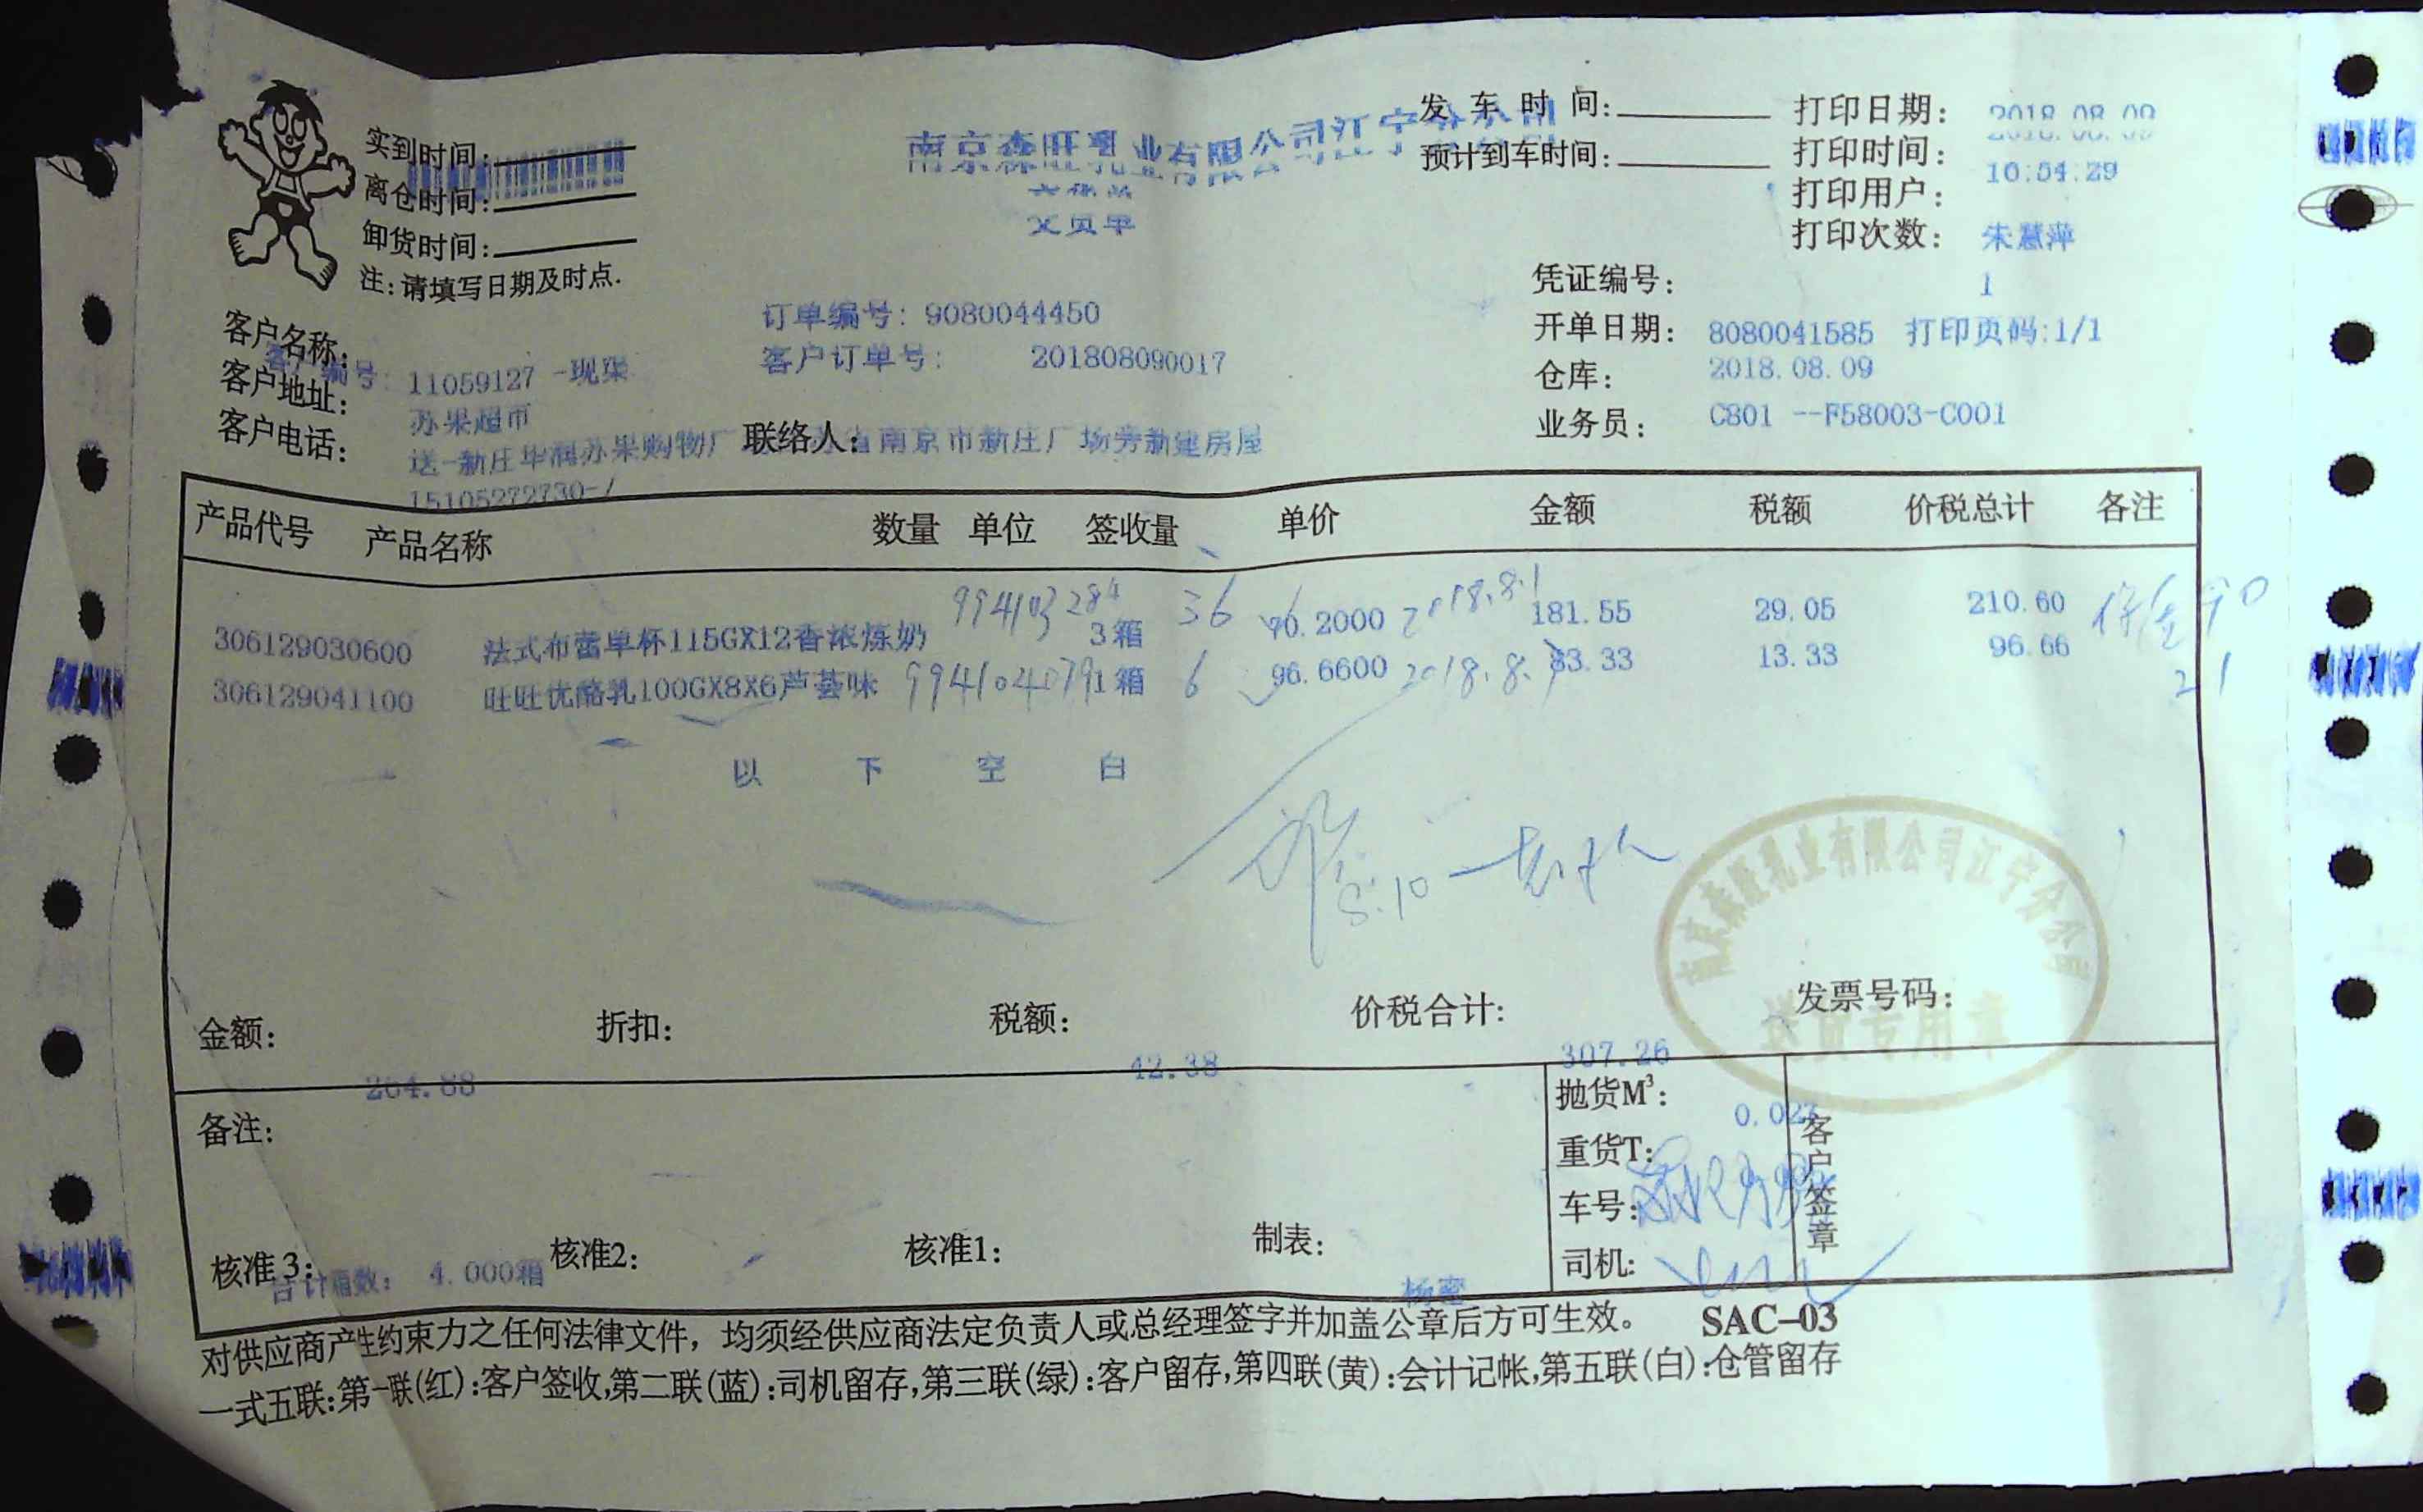 南京森旺乳业有限公司江宁分公司
交货单
实到时间:
离仓时间:
卸货时间:
注:请填写日期及时点.
发车时间:
预计到车时间:
打印日期: 2018.08.09
打印时间: 10:54:29
打印用户: 朱慧萍
打印次数: 1
凭证编号: 8080041585 打印页码:1/1
开单日期: 2018.08.09
仓库: C801 --F58003-C001
业务员:
订单编号: 9080044450
客户订单号: 201808090017
客户编号: 11059127 -现渠
客户名称: 苏果超市
客户地址: 送-新庄华润苏果购物广 省南京市新庄广场旁新建房屋
客户电话: 15105272730-/
联络人:
产品代号 产品名称 数量 单位 签收量 单价 金额 税额 价税总计 各注
994103284 36 2018.8.1
306129030600 法式布蕾单杯115GX12香浓炼奶 3箱 70.2000 181.55 29.05 210.60
306129041100 旺旺优酪乳100GX8X6芦荟味 1箱 6 96.6600 83.33 13.33 96.66
21
以下空白
8.10
金额: 264.88
折扣:
税额: 42.38
价税合计: 307.26
发票号码:
备注:
抛货M³: 0.023
重货T:
车号:
司机:
客户签章
核准3: 核准2: 核准1: 制表: 杨蜜
合计箱数: 4.000箱
对供应商产生约束力之任何法律文件，均须经供应商法定负责人或总经理签字并加盖公章后方可生效。 SAC-03
一式五联:第一联(红):客户签收,第二联(蓝):司机留存,第三联(绿):客户留存,第四联(黄):会计记帐,第五联(白):仓管留存